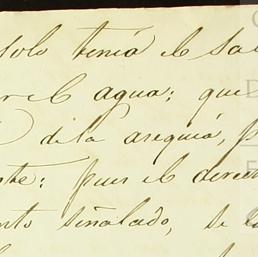 solo tenia el sa
el agua; que
dila asequiá, p
te; pues el derec
nto señalado, se